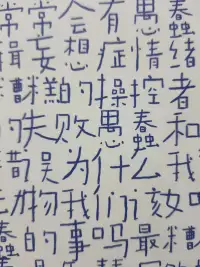 常常会有愚蠢
妄想症情绪
糟糕的操控者
的失败愚蠢和
错误为什么我
物我们
蠢的事吗最糟